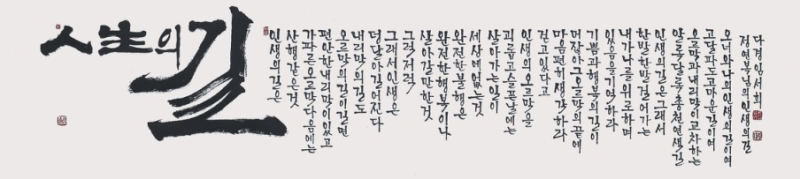 人生의길
인생의길은
산행같은것
가파른오르막다음에는
편안한내리막이있고
오르막의길이길면
내리막의길도
덩달아길어진다
그래서인생은
그럭저럭
살아갈만한것
완전한행복이나
완전한불행은
세상에없는것
살아가는일이
괴롭고슬픈날에는
인생의오르막을
걷고있다고
마음편히생각하라
머잖아그오르막의끝에
기쁨과행복의길이
있음을기억하라
내가나를위로하며
한발한발걸어가는
인생의길은그래서
알록달록총천연색길
오르막과내리막이교차하는
고달파도고마운길이여
오너와나의인생의길이여
정연복님의인생의길
다경임서희